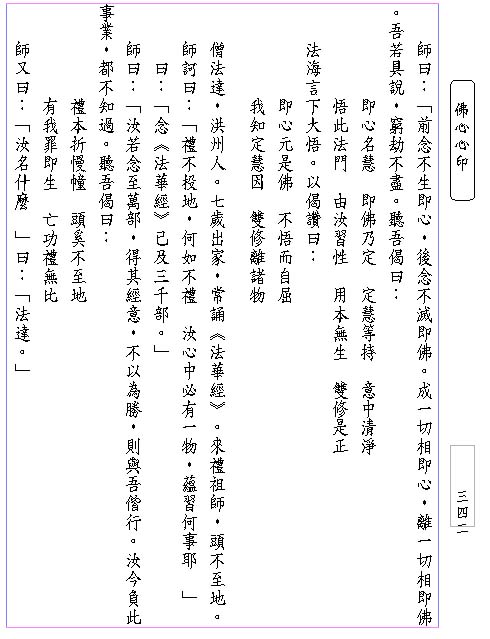 佛心心印
師曰：「前念不生即心，後念不滅即佛。成一切相即心，離一切相即佛
。吾若具說，窮劫不盡。聽吾偈曰：
即心名慧　即佛乃定　定慧等持　意中清淨
悟此法門　由汝習性　用本無生　雙修是正
法海言下大悟。以偈讚曰：
即心元是佛　不悟而自屈
我知定慧因　雙修離諸物
僧法達，洪州人。七歲出家，常誦《法華經》。來禮祖師，頭不至地。
師訶曰：「禮不投地，何如不禮　汝心中必有一物，蘊習何事耶　」
曰：「念《法華經》已及三千部。」
師曰：「汝若念至萬部，得其經意，不以為勝，則與吾偕行。汝今負此
事業，都不知過。聽吾偈曰：
禮本折慢幢　頭奚不至地
有我罪即生　亡功禮無比
師又曰：「汝名什麼　」曰：「法達。」
三四二